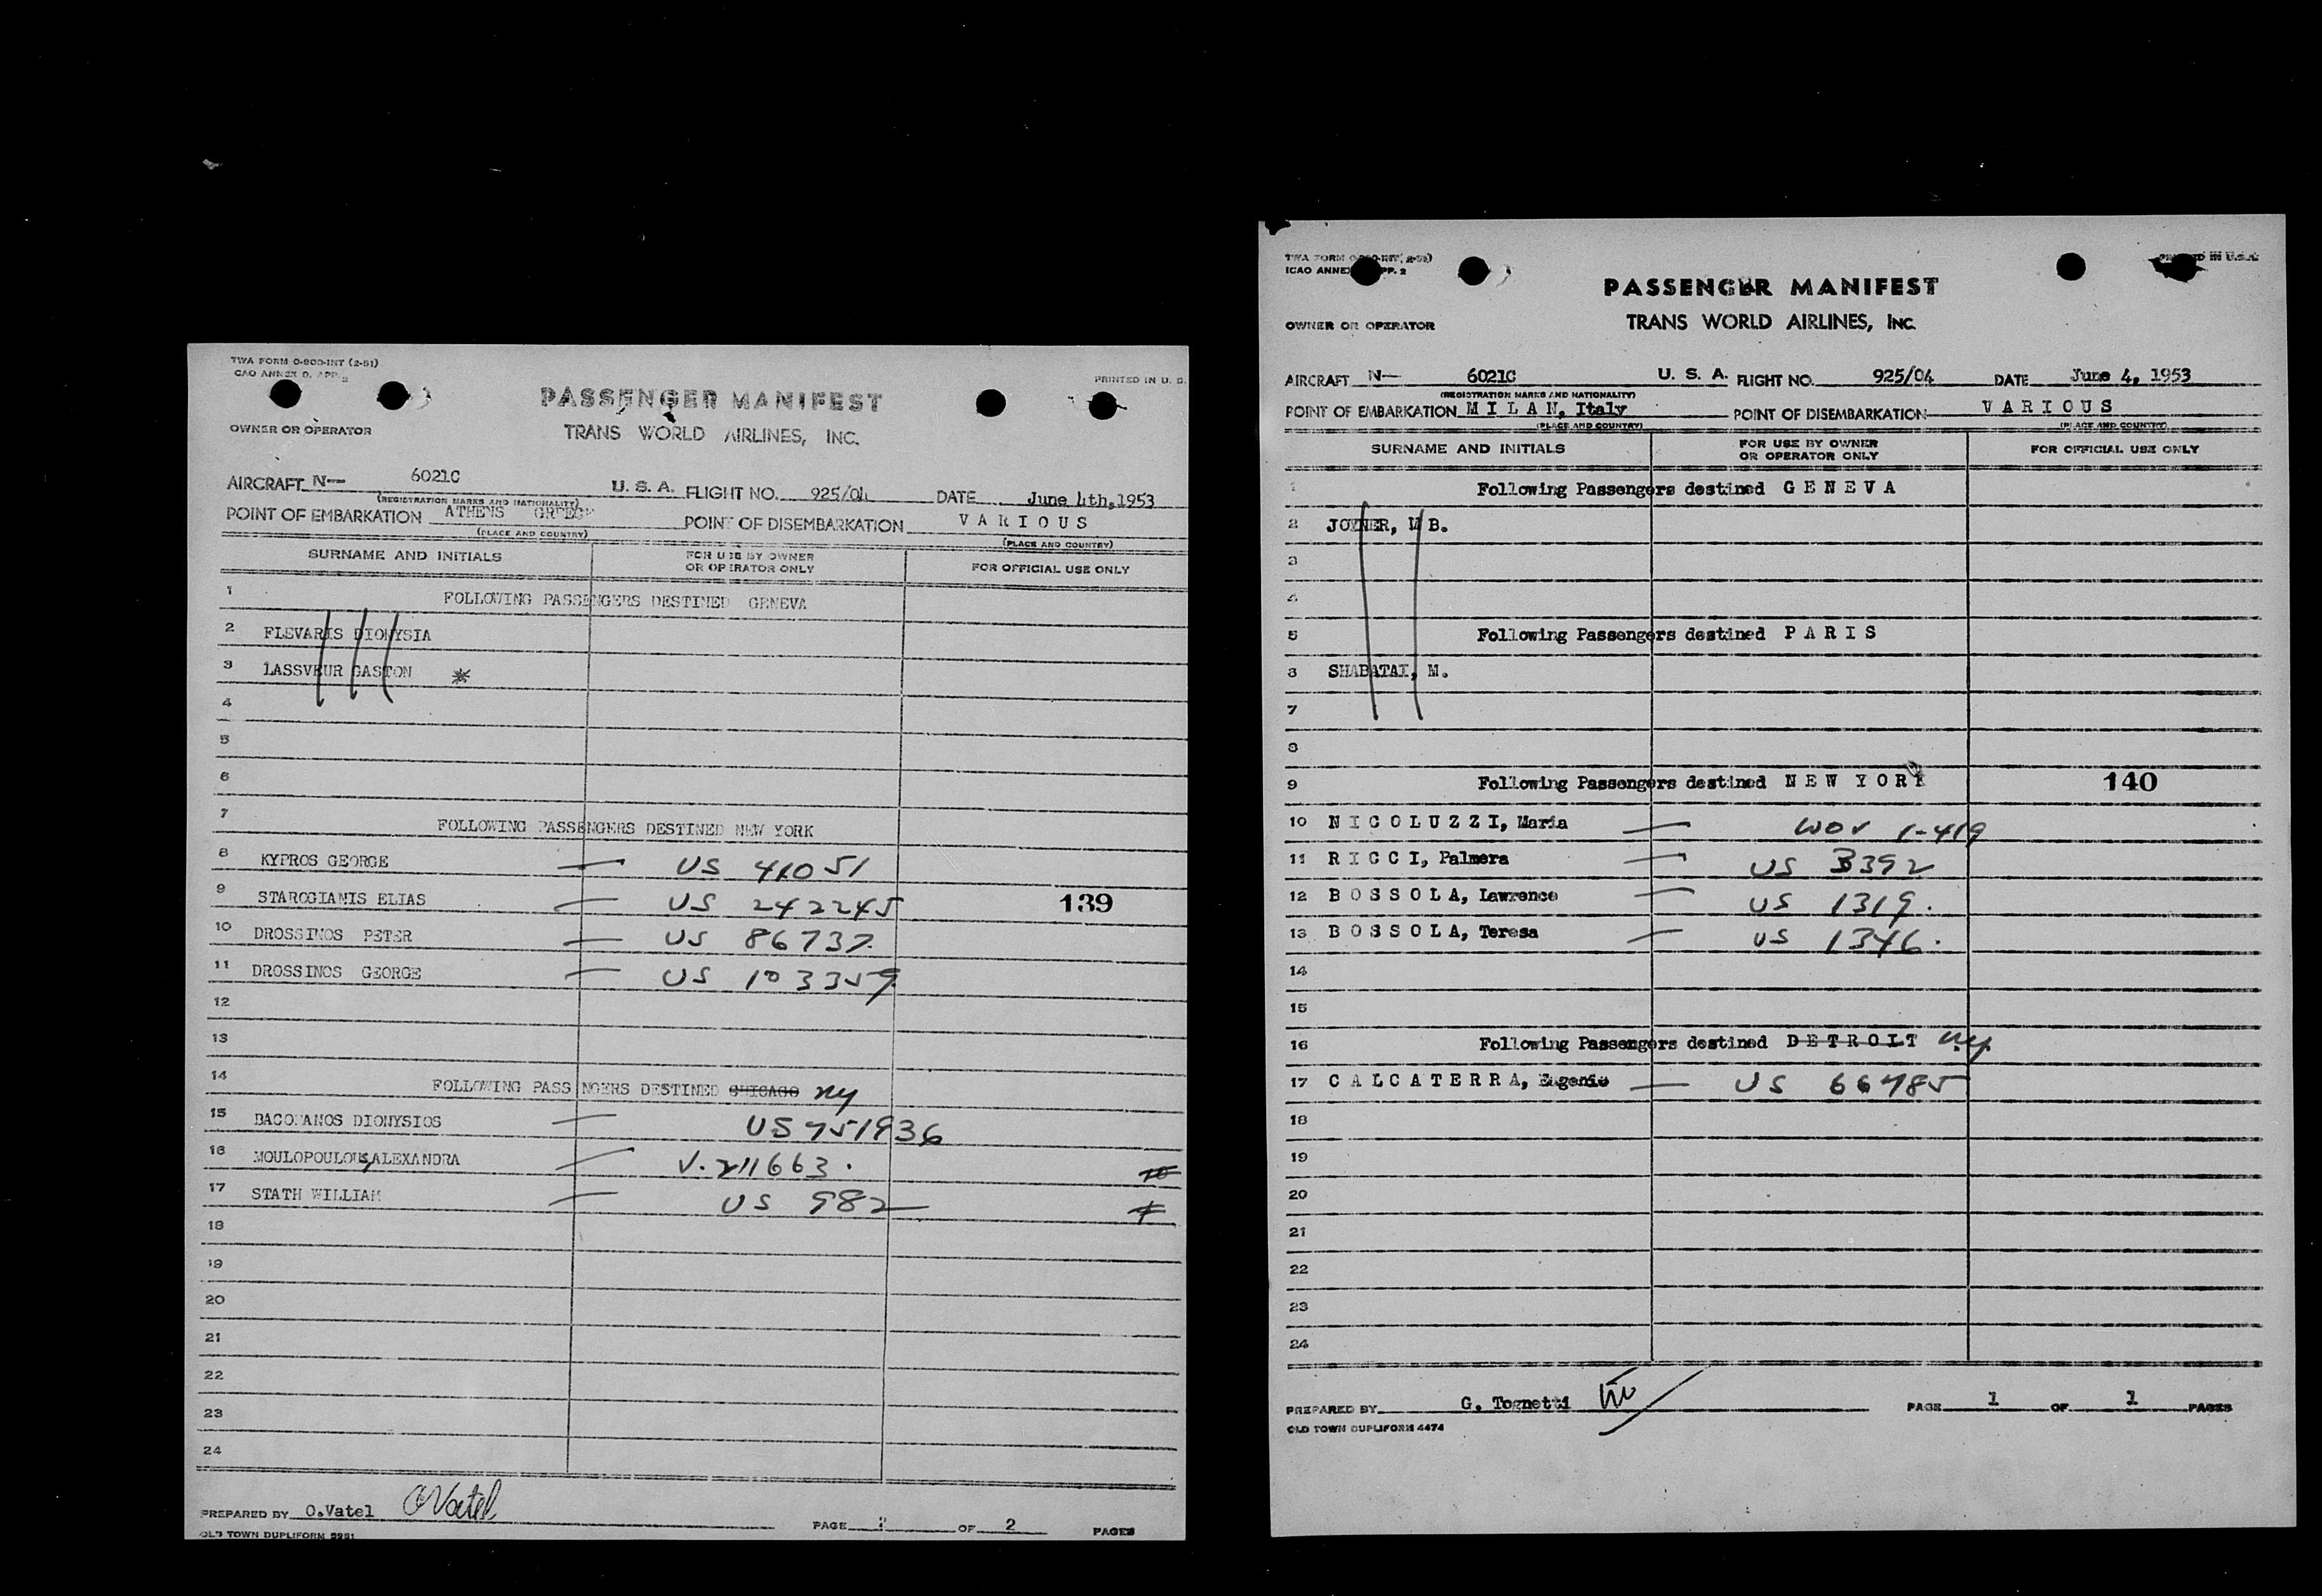 TWA FORM O-800-INT (2-51)
CAO ANNEX 9, APP. 2
PRINTED IN U. S.
PASSENGER MANIFEST
OWNER OR OPERATOR
TRANS WORLD AIRLINES, INC.
AIRCRAFT N-- 6021C U. S. A. FLIGHT NO. 925/04 DATE June 4th,1953
(REGISTRATION MARKS AND NATIONALITY)
POINT OF EMBARKATION ATHENS POINT OF DISEMBARKATION VARIOUS
(PLACE AND COUNTRY) (PLACE AND COUNTRY)
SURNAME AND INITIALS FOR USE BY OWNER OR OPERATOR ONLY FOR OFFICIAL USE ONLY
1 FOLLOWING PASSENGERS DESTINED GENEVA
2 FLEVARIS DIONYSIA
3 LASSVEUR GASTON *
4
5
6
7 FOLLOWING PASSENGERS DESTINED NEW YORK
8 KYPROS GEORGE — US 41051
9 STAROGIANIS ELIAS — US 242245 139
10 DROSSINOS PETER — US 86737
11 DROSSINOS GEORGE — US 103359
12
13
14 FOLLOWING PASSENGERS DESTINED CHICAGO NY
15 DIONYSIOS — US 951936
16 MOULOPOULOUS,ALEXANDRA — V. 211663.
17 STATH WILLIAM — US 982
18
19
20
21
22
23
24
PREPARED BY O.Vatel OVatel PAGE OF 2 PAGES
OLD TOWN DUPLIFORM
TWA FORM (2-51)
ICAO ANNEX APP. 2
IN U.S.A.
PASSENGER MANIFEST
OWNER OR OPERATOR
TRANS WORLD AIRLINES, INC.
AIRCRAFT N-- 6021C U. S. A. FLIGHT NO. 925/04 DATE June 4, 1953
(REGISTRATION MARKS AND NATIONALITY)
POINT OF EMBARKATION MILAN, Italy POINT OF DISEMBARKATION VARIOUS
(PLACE AND COUNTRY) (PLACE AND COUNTRY)
SURNAME AND INITIALS FOR USE BY OWNER OR OPERATOR ONLY FOR OFFICIAL USE ONLY
1 Following Passengers destined GENEVA
2 JOYNER, M B.
3
4
5 Following Passengers destined PARIS
6 SHABATAI, M.
7
8
9 Following Passengers destined NEW YORK 140
10 NICOLUZZI, Maria — WOV 1-419
11 RICCI, Palmera — US 3392
12 BOSSOLA, Lawrence — US 1319.
13 BOSSOLA, Teresa — US 1346.
14
15
16 Following Passengers destined DETROIT NY.
17 CALCATERRA, Eugenio — US 66485
18
19
20
21
22
23
24
PREPARED BY G. Tognetti PAGE 1 OF 1 PAGES
OLD TOWN DUPLIFORM 4474